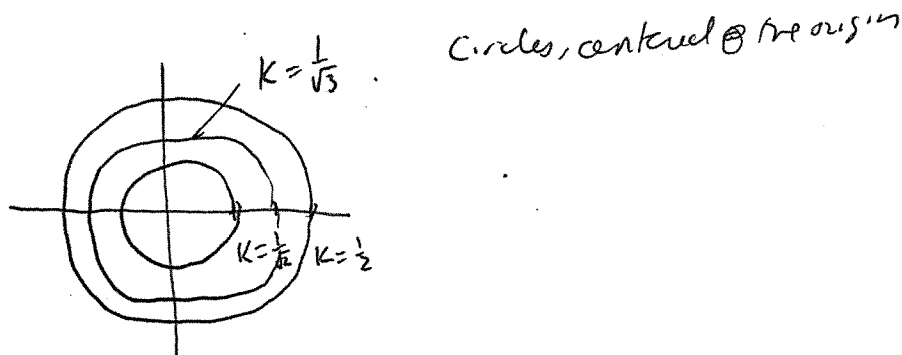 Circles, centered @ the origin
K = 1/√3
K = 1/√2
K = 1/2